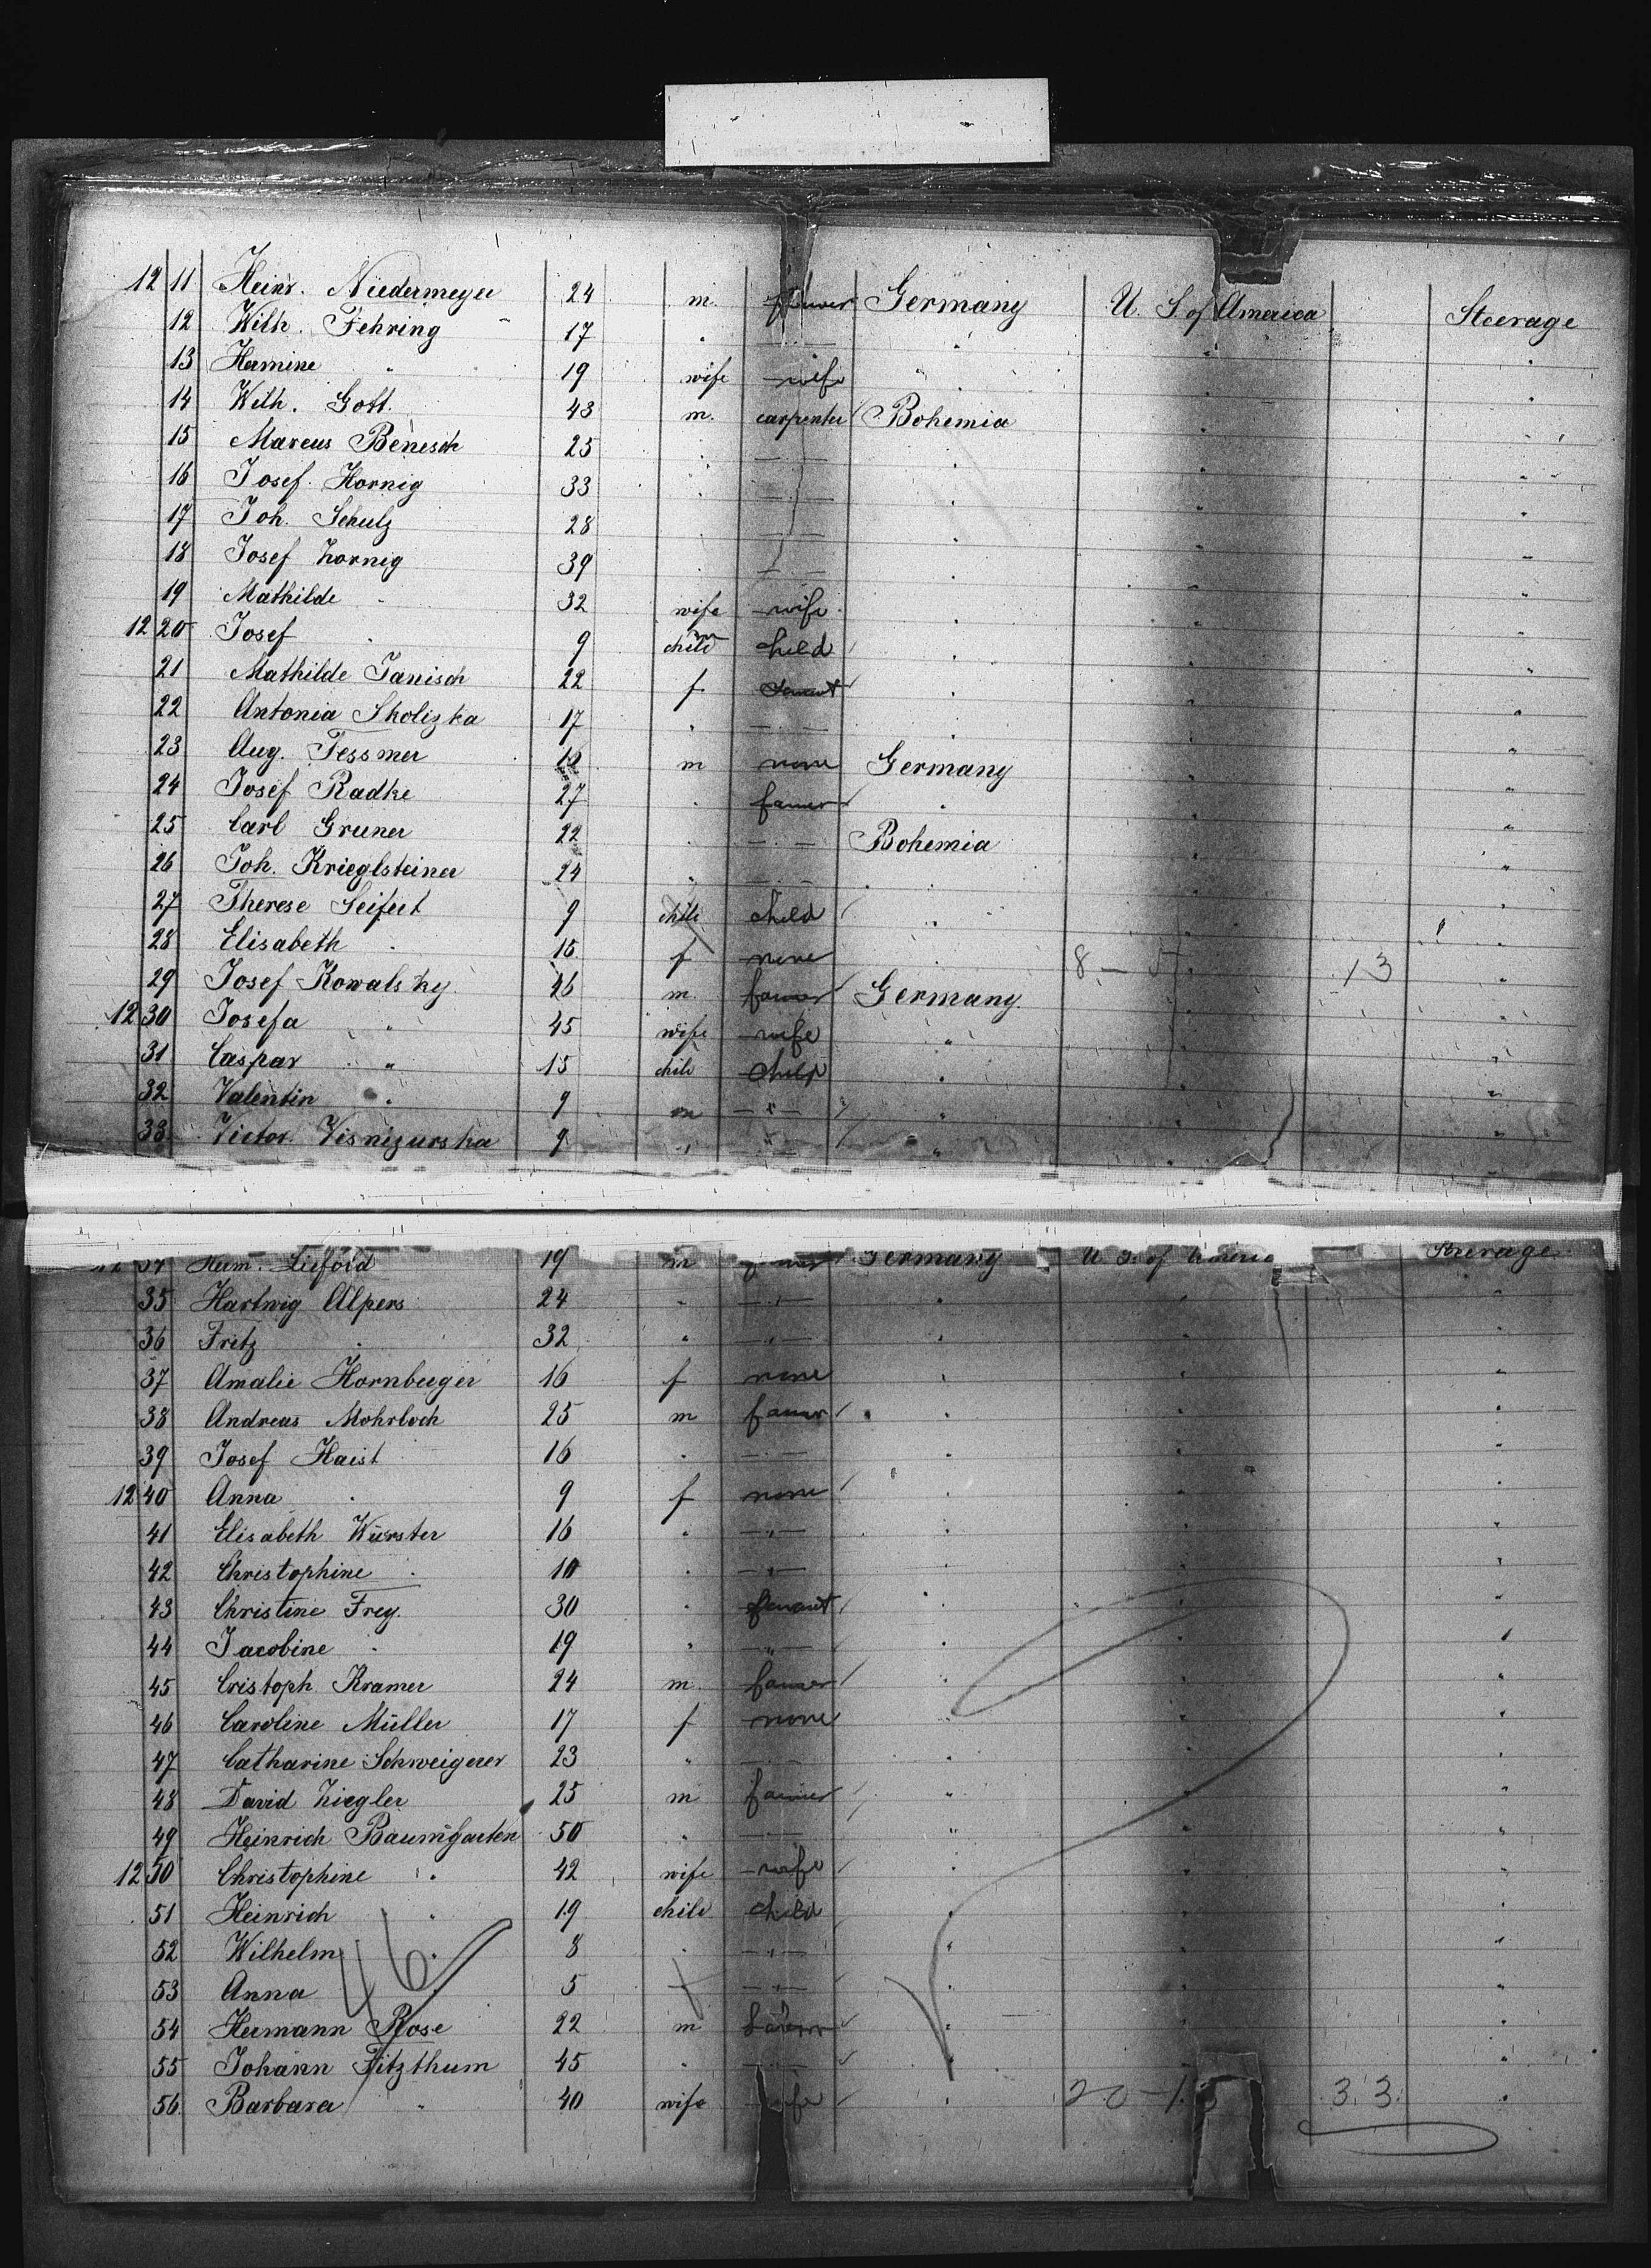 12 11 Heinr. Niedermeyer 24 m. farmer Germany U. S. of America Steerage
12 Wilh. Fehring 17 " — " — " " "
13 Hermine " 19 wife wife " " "
14 Wilh. Gott. 43 m. carpenter Bohemia " "
15 Marcus Benesch 25 " — " — " " "
16 Josef Hornig 33 " — " — " " "
17 Joh. Schulz 28 " — " — " " "
18 Josef Hornig 39 " — " — " " "
19 Mathilde " 32 wife wife " " "
12 20 Josef " 9 child m child " " "
21 Mathilde Janisch 22 f servant " " "
22 Antonia Skolizka 17 " — " — " " "
23 Aug. Tessmer m none Germany " "
24 Josef Radke 27 " farmer " " "
25 Carl Gruner 22 " — " — Bohemia " "
26 Joh. Krieglsteiner 24 " — " — " " "
27 Therese Seifert 9 child child " " "
28 Elisabeth " 15 f none " 8 — 5 13 "
29 Josef Kowalsky 46 m. farmer Germany. " "
12 30 Josefa " 45 wife wife " " "
31 Caspar " 15 child child " " "
32 Valentin " 9 m — " — " " "
33 Victor Visnizurska 9 " — " — " " "
12 34 Herm. Leifold 19 m farmer Germany U. S. of America Steerage
35 Hartwig Alpers 24 " — " — " " "
36 Fritz " 32 " — " — " " "
37 Amalie Hornberger 16 f none " " "
38 Andreas Mohrloch 25 m farmer " " "
39 Josef Haist 16 " — " — " " "
12 40 Anna " 9 f none " " "
41 Elisabeth Würster 16 " — " — " " "
42 Christophine " 10 " — " — " " "
43 Christine Frey. 30 " servant " " "
44 Jacobine " 19 " — " — " " "
45 Cristoph Kramer 24 m. farmer " " "
46 Caroline Müller 17 f none " " "
47 Catharine Schweigerer 23 " — " — " " "
48 David Ziegler 25 m farmer " " "
49 Heinrich Baumgarten 50 " — " — " " "
12 50 Christophine " 42 wife wife " " "
51 Heinrich " 19 child child " " "
52 Wilhelm " 8 " — " — " " "
53 Anna " 5 — " — " " "
54 Hermann Rose 22 m farmer " " "
55 Johann Fitzthum 45 " — " — " " "
56 Barbara " 40 wife wife " 20 — 13 33 "
46